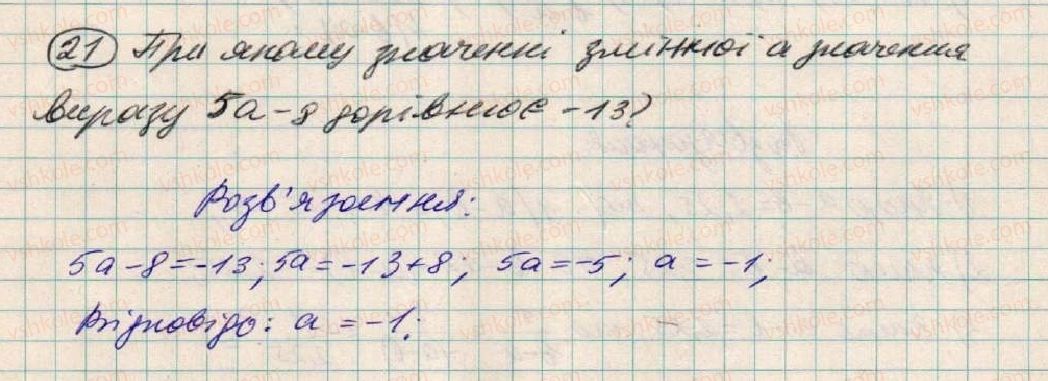 21 При якому значенні змінної а значення
виразу 5а-8 дорівнює -13?
Розв'язання:
5а-8=-13; 5а=-13+8; 5а=-5; а=-1;
Відповідь: а=-1;